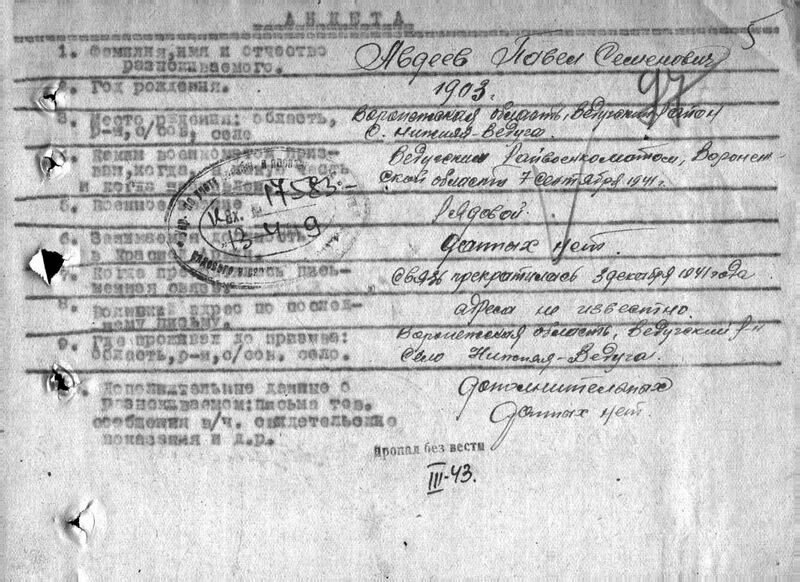 АНКЕТА
5
97
1. Фамилия, имя и отчество разыскиваемого.
Авдеев Павел Семенович
Год рождения.
1903 г.
3. Место рождения: область, р-н, с/сов, село
Воронежская область, Ведугский район
С. Нижняя-Ведуга.
Каким военкоматом
и когда
Ведугским Райвоенкоматом, Воронеж-
ской области 7 сентября 1941 г.
5.
Рядовой.
6.
в Красной
данных нет
Когда
пись-
менная связь
Связь прекратилась 3 декабря 1941 года
8.
адрес по послед-
нему письму.
адреса не известно.
9. Где проживал до призыва:
область, р-н, с/сов. село.
Воронежская область, Ведугский р-н
Село Нижняя-Ведуга.
Дополнительные данные о
разыскиваемом: письма тов.
сообщения в/ч. свидетельские
показания и д.р.
дополнительных
данных нет.
Вх. № 17583
13 4 9
Пропал без вести
III-43.